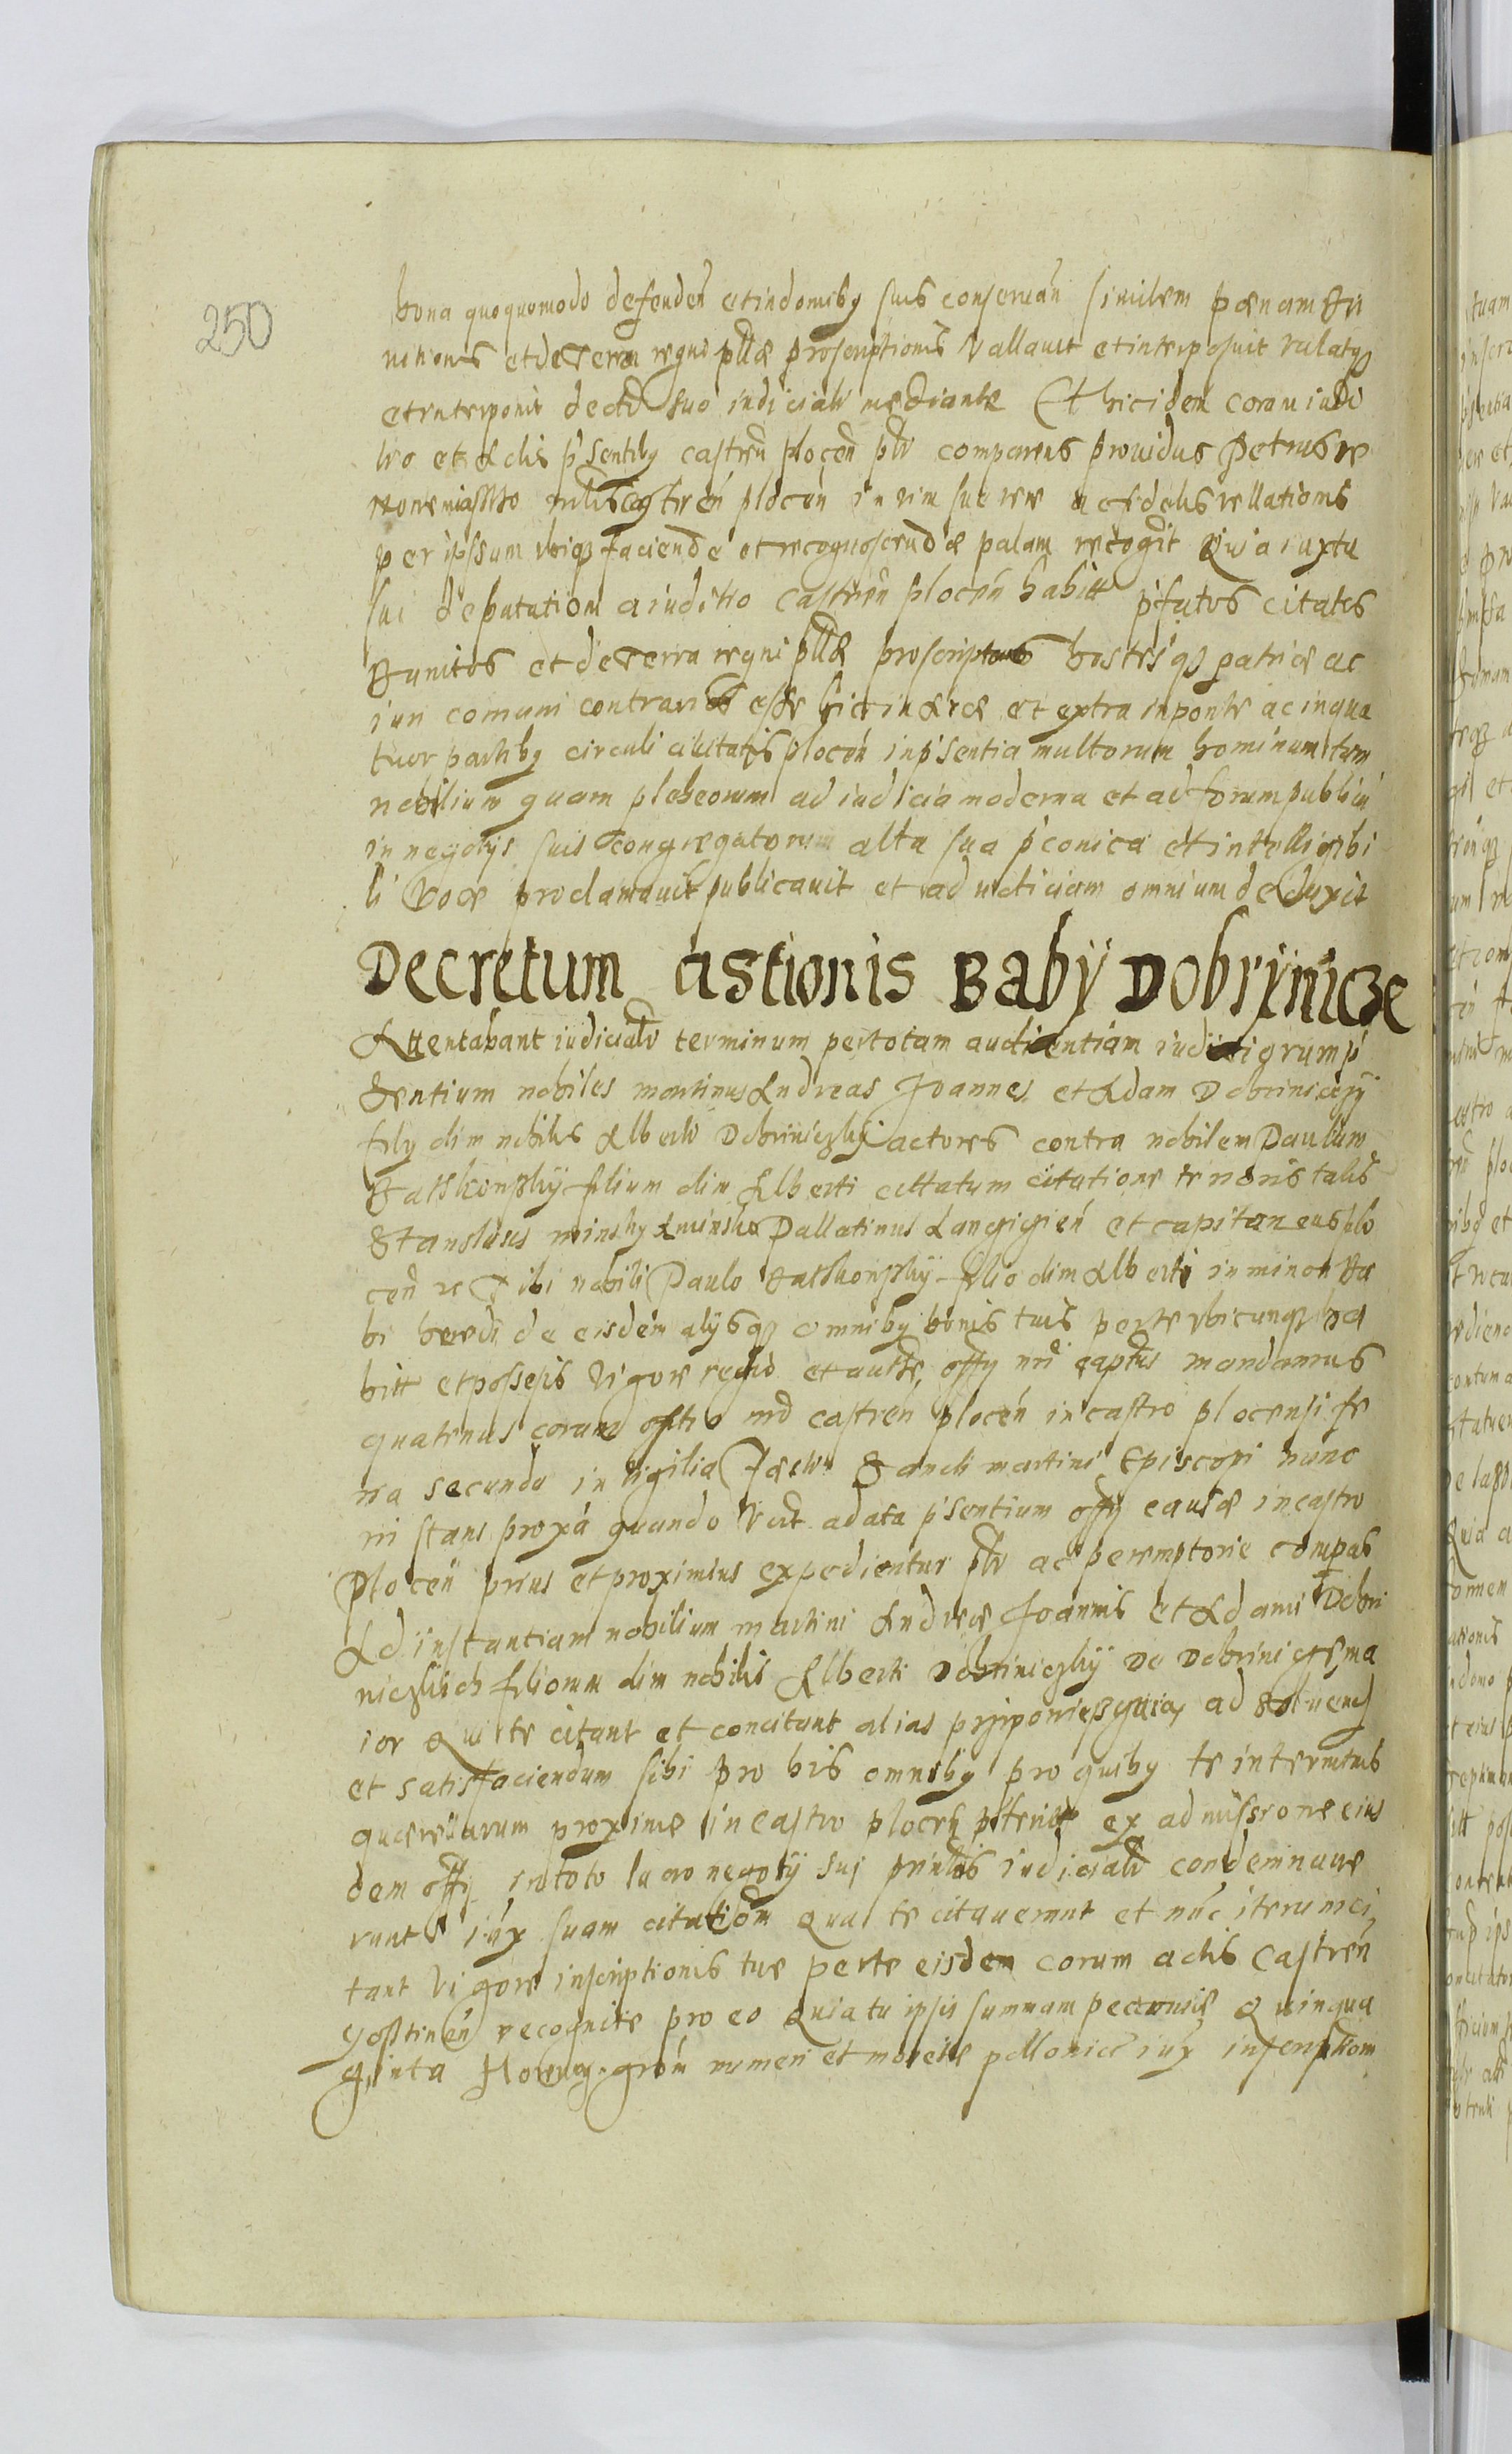 250
bona quoquomodo defendeń et in domiby suis conseruań similem pænam Ru
nitionis et de terra regni pllæ proscriptionis vallauit et interposuit vallatqȝ
et interponit decto suo iudiciali mediante Et hic idem coram iudi
tio et Actis p'sentiby castreń ploceń plr comparens prouidus Petrus
castreń ploceń in vim suæ veræ ac fidelis rellationis
per ipssum vbiqȝ faciendæ et recognoscendæ palam recogit Quia iuxta
sui deputationem a iuditio castreń ploceń habitt p'fatos citatos
Bannitos et de Terra regni pllæ proscriptos hostesqȝ patriæ ac
iuri comuni contrarios esse hic in Arce et extra in ponte ac in qua
tuor partiby circuli ciuitatis ploceń in p'sentia multorum hominum tam
nobilium quam plebeorum ad iudicia moderna et ad forum publicu
in negotys suis congregatorum alta sua p'conica et intelligibi
li voce proclamauit publicauit et ad noticiam omnium deduxit
Decretum astionis Baby Dobrÿnicze
Attentabant iudicialr terminum per totam audientiam iudiciorum p'
sentium nobiles martinus Andreas Joannes et Adam Dobriniczsÿ
fily olim nobilis Alberti Dobriniczky actores contra nobilem Paulum
filium olim Alberti cittatum citatione tenoris talis
Stanislaus minsky Pallatinus Lanczicień et capitaneus plo
ceń Tibi nobili Paulo filio olim Alberti in minori Ba
bi heredi de eisdem alysqȝ omniby bonis tuis per te vbicunqȝ ha
bitt et possesis vigore regio et authte offy nri captlis mandamus
quatenus coram offitio nro castreń ploceń in castro plocensi fe
ria secunda in vigilia Festi Sancti martini Episcopi nunc
in stans proxa quando vert a data p'sentium offy causæ in castro
Ploceń prius et proximius expedientur plr ac peremptorie compas
Ad instantiam nobilium martini Andreæ Joannis et Adami Dobri
niczkich filiorum olim nobilis Alberti Dobriniczkÿ De Dobrinicze ma
ior Qui te citant et concitant alias ad soluend
et satisfaciendum sibi pro his omniby pro quiby te in terminis
quærellarum proxime in castro ploceń p'terit ex admissione eius
dem offy in toto lucro negotÿ sui iudicialr condemnaue
runt iux suam citationem Qua te citauerunt et nuc iterum ci
tant vigore inscriptionis tuæ per te eisdem coram actis castreń
Gostineń recognitæ pro eo Quia tu ipsis summam pecuniæ Quinqua
ginta Floren numeri et monetæ pollonicæ iux inscriptiom